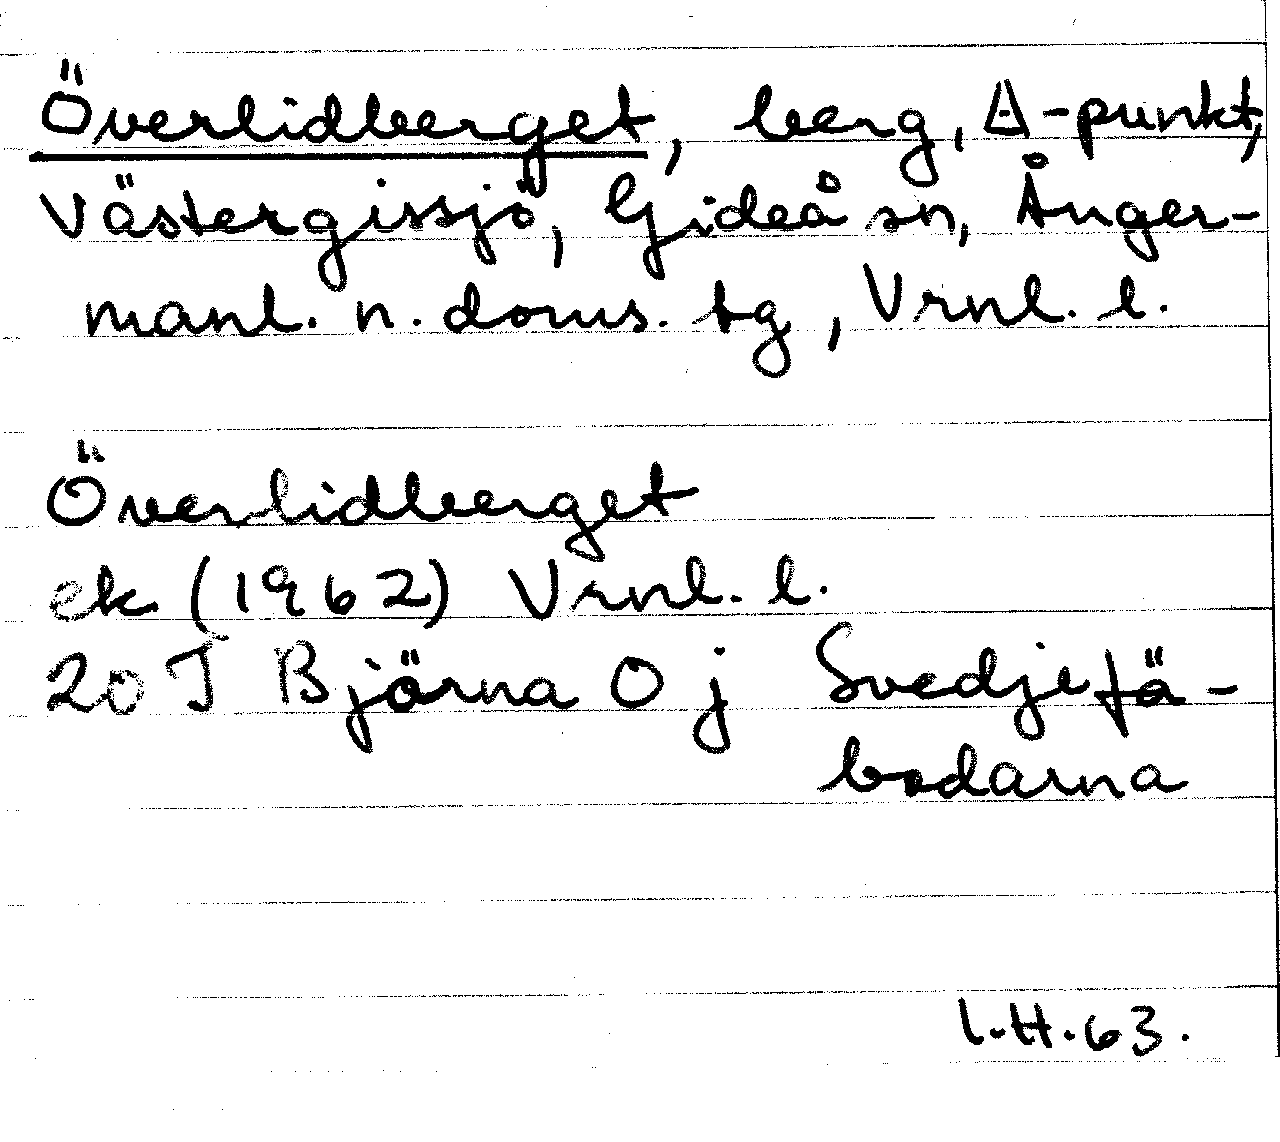 Överlidberget, berg, △-punkt,
Västergissjö, Gideå sn, Ånger-
manl. n. doms. tg, Vrnl. l.
Överlidberget
ek (1962) Vrnl. l.
20 J Björna 0 j Svedjefä-
bodarna
I.H.63.